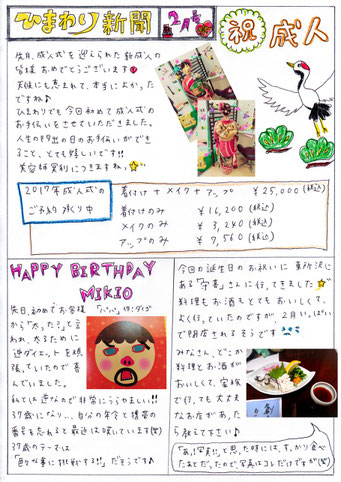 ひまわり新聞 2月号
祝 成人
先月、成人式を迎えられた新成人の
皆様 おめでとうございます
天候にも恵まれて、本当によかった
ですね♪
ひまわりでも今回初めて成人式の
お手伝いをさせていただきました。
人生の門出の日のお手伝いができ
ること、とても嬉しいです!!
美容師冥利につきますね。
2017年成人式の
ご予約 承り中
着付け + メイク + アップ ¥25,000(税込)
着付けのみ ¥16,200(税込)
メイクのみ ¥3,240(税込)
アップのみ ¥7,560(税込)
HAPPY BIRTHDAY
MIKIO
先日、初めてお客様
から「太った?」と言
われ、太るために
逆ダイエットを頑
張っていたので喜
んでいました。
私とは逆なので非常にうらやましい!!
37歳になり…、自分の年令と携帯の
番号も忘れると最近は嘆いています(笑)
37歳のテーマは
「色々な事に挑戦する!!」だそうです♪
「パパ」
今回の誕生日のお祝いに 東所沢に
ある「宇喜」さんに行ってきました
料理もお酒もとてもおいしくて、
よく行っていたのですが、2月いっぱい
で閉店されるそうです
みなさん、どこか
料理とお酒が
おいしくて、家族
で行っても大丈夫
なお店があった
ら教えて下さい♪
「あ!写真!!」と思った時には、すっかり食べ
たあとだったので、写真はコレだけですが(笑)